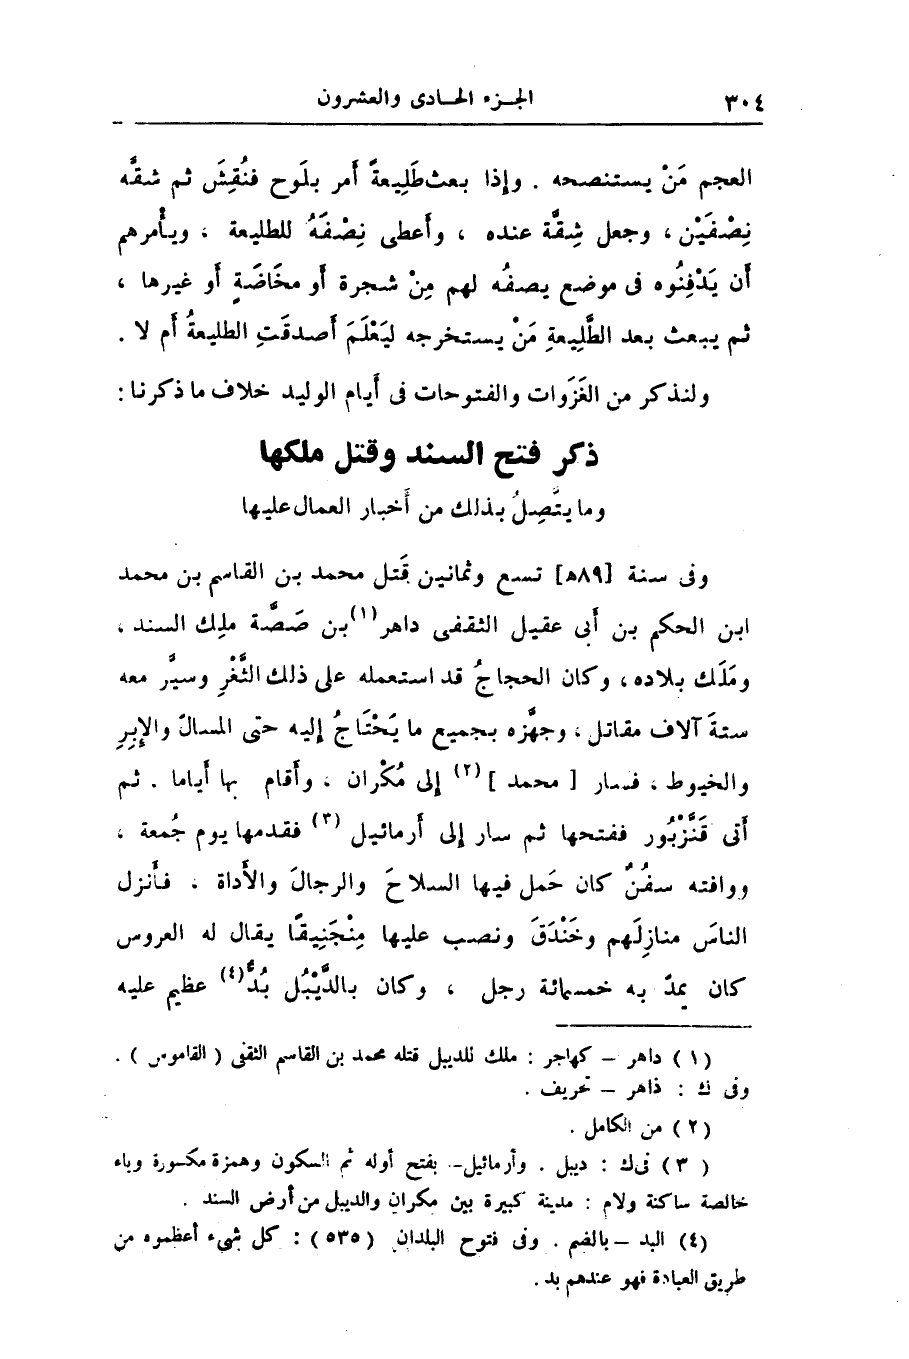 ٣٠٤ الجزء الحادى والعشرون
العجم مَنْ يستنصحه . وإذا بعث طَلِيعةً أمر بلَوح فنُقِشَ ثم شقَّه
نِصْفَيْن ، وجعل شِقَّة عنده ، وأعطى نِصْفَهُ للطليعة ، ويأْمرهم
أن يَدْفِنُوه فى موضع يصفُه لهم مِنْ شجرة أو مخَاضَةٍ أو غيرها ،
ثم يبعث بعد الطَّلِيعةِ مَنْ يستخرجه ليَعْلَمَ أصدقَتِ الطليعةُ أم لا .
ولنذكر من الغَزَوات والفتوحات فى أيام الوليد خلاف ما ذكرنا :
ذكر فتح السند وقتل ملكها
وما يتَّصِلُ بذلك من أخبار العمال عليها
وفى سنة [٨٩هـ] تسع وثمانين قَتل محمد بن القاسم بن محمد
ابن الحكم بن أبى عقيل الثقفى داهر(١) بن صَصَّة ملِك السند ،
ومَلَك بلاده ، وكان الحجاجُ قد استعمله على ذلك الثَّغْرِ وسيَّر معه
ستةَ آلاف مقاتل ، وجهَّزه بجميع ما يَحْتَاجُ إليه حتى المسالّ والإِبرِ
والخيوط ، فسار [ محمد ] (٢) إلى مُكْران ، وأقام بها أياما . ثم
أتى قَنَّزْبُور ففتحها ثم سار إلى أرمائيل (٣) فقدمها يوم جُمعة ،
ووافته سفُنٌ كان حَمل فيها السلاحَ والرجالَ والأداة ، فأنزل
الناسَ منازِلَهم وخَنْدَقَ ونصب عليها مِنْجَنِيقًا يقال له العروس
كان يمدّ به خمسمائة رجل ، وكان بالدَّيْبُل بُدٌّ(٤) عظيم عليه
(١) داهر – كهاجر : ملك للديبل قتله محمد بن القاسم الثقفى ( القاموس ) .
وفى ك : ذاهر – تحريف .
(٢) من الكامل .
( ٣ ) فى ك : ديبل . وأرمائيل – بفتح أوله ثم السكون وهمزة مكسورة وياء
خالصة ساكنة ولام : مدينة كبيرة بين مكران والديبل من أرض السند .
(٤) البد – بالضم . وفى فتوح البلدان (٥٣٥) : كل شىء أعظموه من
طريق العبادة فهو عندهم بد .